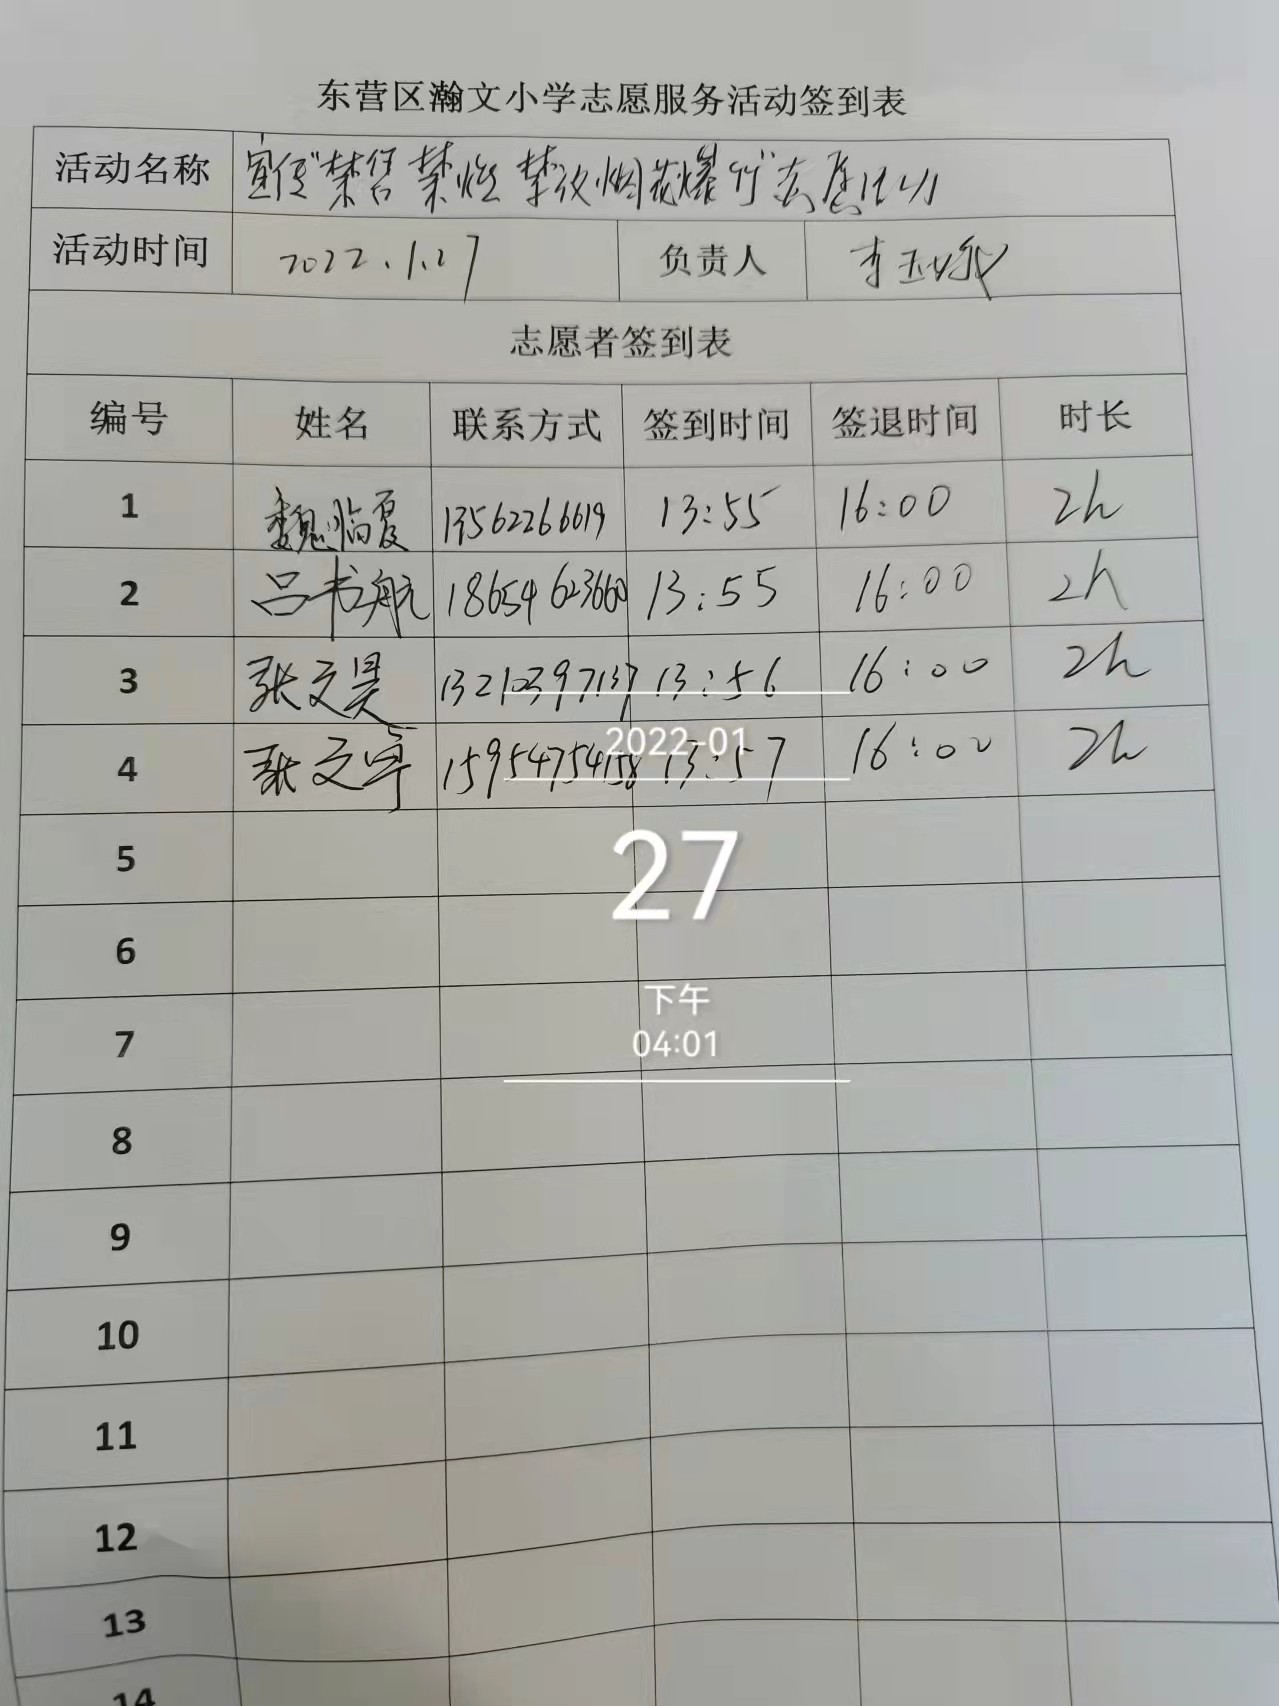 东营区瀚文小学志愿服务活动签到表
活动名称 宣传"禁售 禁燃 禁放烟花爆竹"志愿活动
活动时间 2022.1.27 负责人 李玉
志愿者签到表
编号 姓名 联系方式 签到时间 签退时间 时长
1 魏临夏 13562266619 13:55 16:00 2h
2 吕书航 18654623660 13:55 16:00 2h
3 张文昊 13210397137 13:56 16:00 2h
4 张文宁 15954754158 13:57 16:00 2h
2022-01
5
27
6
7
下午
04:01
8
9
10
11
12
13
14